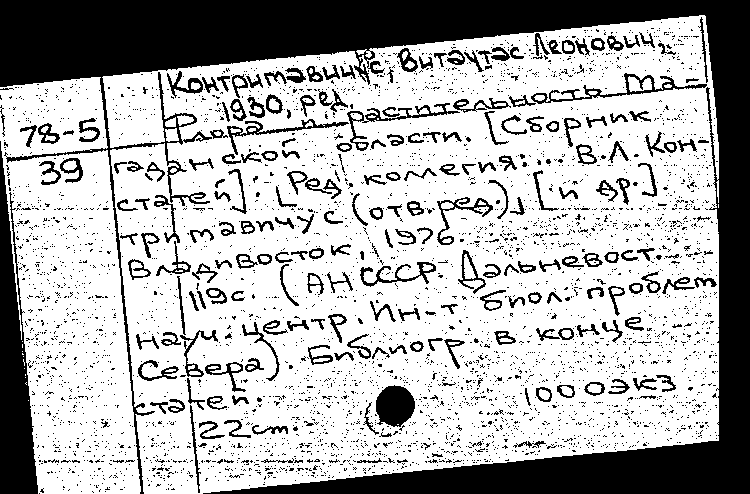 Контримавичус, Витаутас Леонович,
1930, ред.
78-5
39
Флора и растительность Ма-
гаданской области. [Сборник
статей]. [Ред. коллегия: ... В.Л. Кон-
тримавичус (отв. ред.)] [и др.].
Владивосток, 1976.
119с. (АН СССР. Дальневост.
науч. центр. Ин-т биол. проблем
Севера). Библиогр. в конце
статей.
1000экз.
22см.